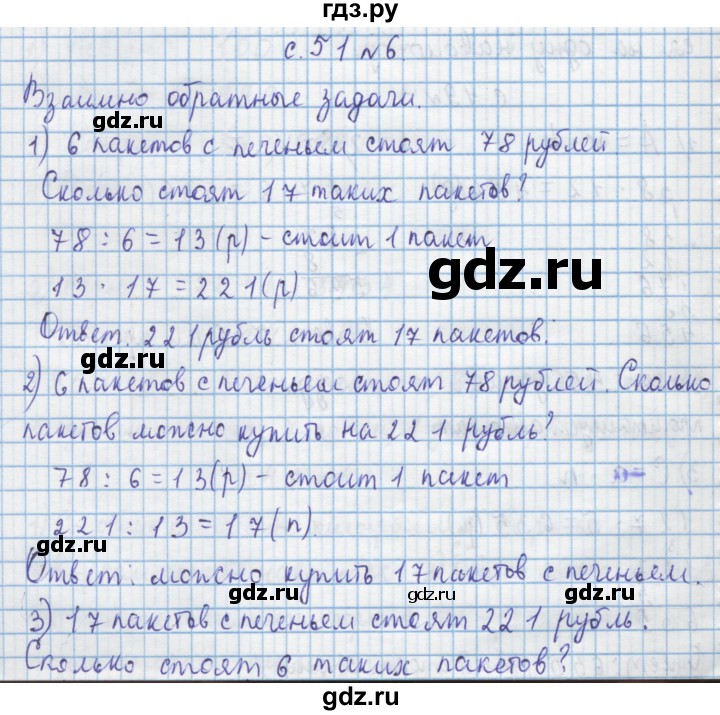 гдз.ру
с. 51 №6.
Взаимно обратные задачи.
gdz.ru
gdz.ru
1) 6 пакетов с печеньем стоят 78 рублей
Сколько стоят 17 таких пакетов?
78 : 6 = 13 (р) - стоит 1 пакет
gdz.ru
13 · 17 = 221 (р)
Ответ: 221 рубль стоят 17 пакетов.
gdz.ru
gdz.ru
2) 6 пакетов с печеньем стоят 78 рублей. Сколько
пакетов можно купить на 221 рубль?
78 : 6 = 13 (р) - стоит 1 пакет
221 : 13 = 17 (п)
gdz.ru
gdz.ru
Ответ: можно купить 17 пакетов с печеньем.
gdz.ru
gdz.ru
gdz.ru
3) 17 пакетов с печеньем стоят 221 рубль.
Сколько стоят 6 таких пакетов?
gdz.ru